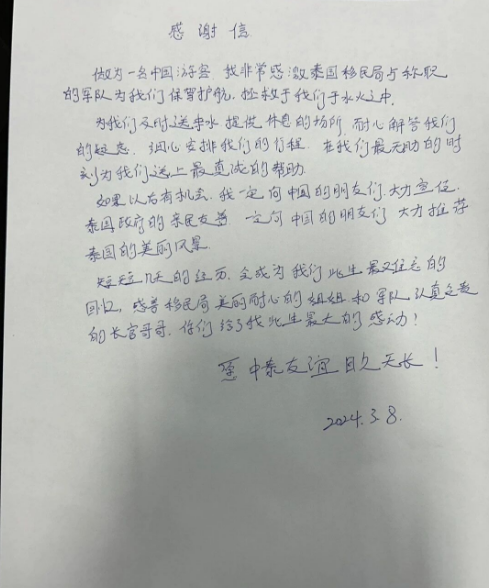 感谢信
做为一名中国游客，我非常感激泰国移民局与称职
的军队为我们保驾护航，拯救于我们于水火之中。
为我们及时送来水 提供休息的场所，耐心解答我们
的疑惑，细心安排我们的行程，在我们最无助的时
刻为我们送上最真诚的帮助。
如果以后有机会，我一定向中国的朋友们，大力宣传
泰国政府的亲民友善，一定向中国的朋友们大力推荐
泰国的美丽风景。
短短几天的经历，会成为我们此生最难忘的
回忆，感谢移民局美丽耐心的姐姐和军队认真负责
的长官哥哥，你们给了我此生最大的感动！
愿中泰友谊日久天长！
2024.3.8.